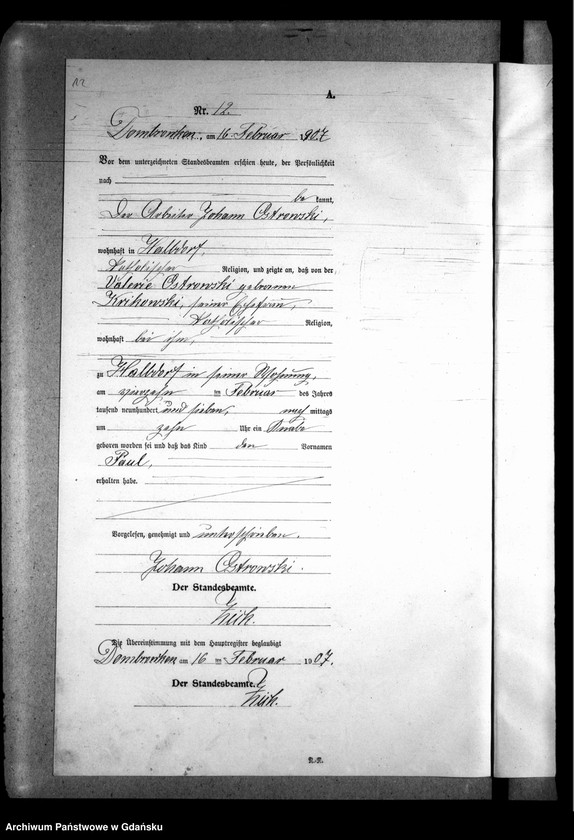 12
A.
Nr. 12.
Dombrowken, am 16 Februar 1907
Vor dem unterzeichneten Standesbeamten erschien heute, der Persönlichkeit
nach
be kannt,
Der Arbeiter Johann Ostrowski,
wohnhaft in Halbdorf,
katholischer Religion, und zeigte an, daß von der
Valerie Ostrowski geborenen
Krikowski, seiner Ehefrau,
katholischer Religion,
wohnhaft bei ihm,
zu Halbdorf in seiner Wohnung,
am vierzehn ten Februar des Jahres
tausend neunhundert und sieben, nach mittags
um zehn Uhr ein Knabe
geboren worden sei und daß das Kind den Vornamen
Paul,
erhalten habe.
Vorgelesen, genehmigt und unterschrieben.
Johann Ostrowski.
Der Standesbeamte.
Die Übereinstimmung mit dem Hauptregister beglaubigt
Dombrowken am 16 ten Februar 1907.
Der Standesbeamte.
Archiwum Państwowe w Gdańsku